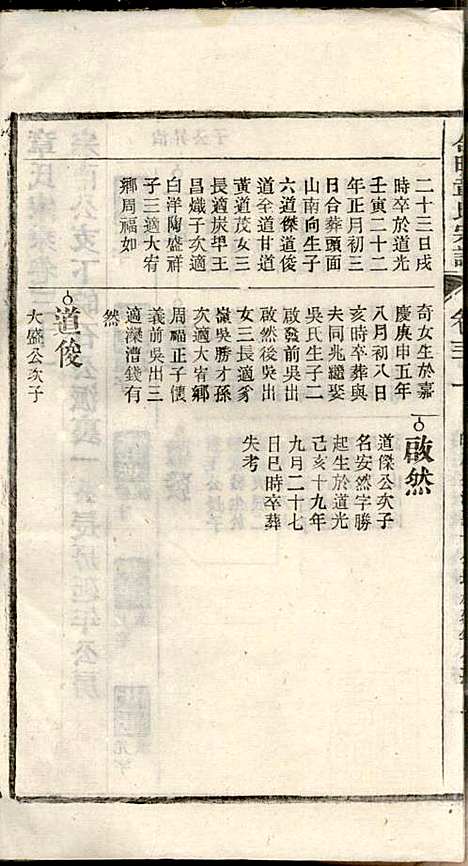 二十三日戌
時卒於道光
壬寅二十二
年正月初三
日合葬頭面
山南向生子
六道傑道俊
道全道甘道
黃道茂女三
長適炭埠王
昌熾子次適
白洋陶盛祥
子三適大宥
鄉周福如
奇女生於嘉
慶庚申五年
八月初八日
亥時卒葬與
夫同兆繼娶
吳氏生子二
啟發前吳出
啟然後吳出
女三長適爹
嶺吳勝才孫
次適大宥鄉
周福正子懷
義前吳出三
適濼漕錢有
然
道俊
大盛公次子
啟然
道傑公次子
名安然字勝
起生於道光
己亥十九年
九月二十七
日巳時卒葬
失考